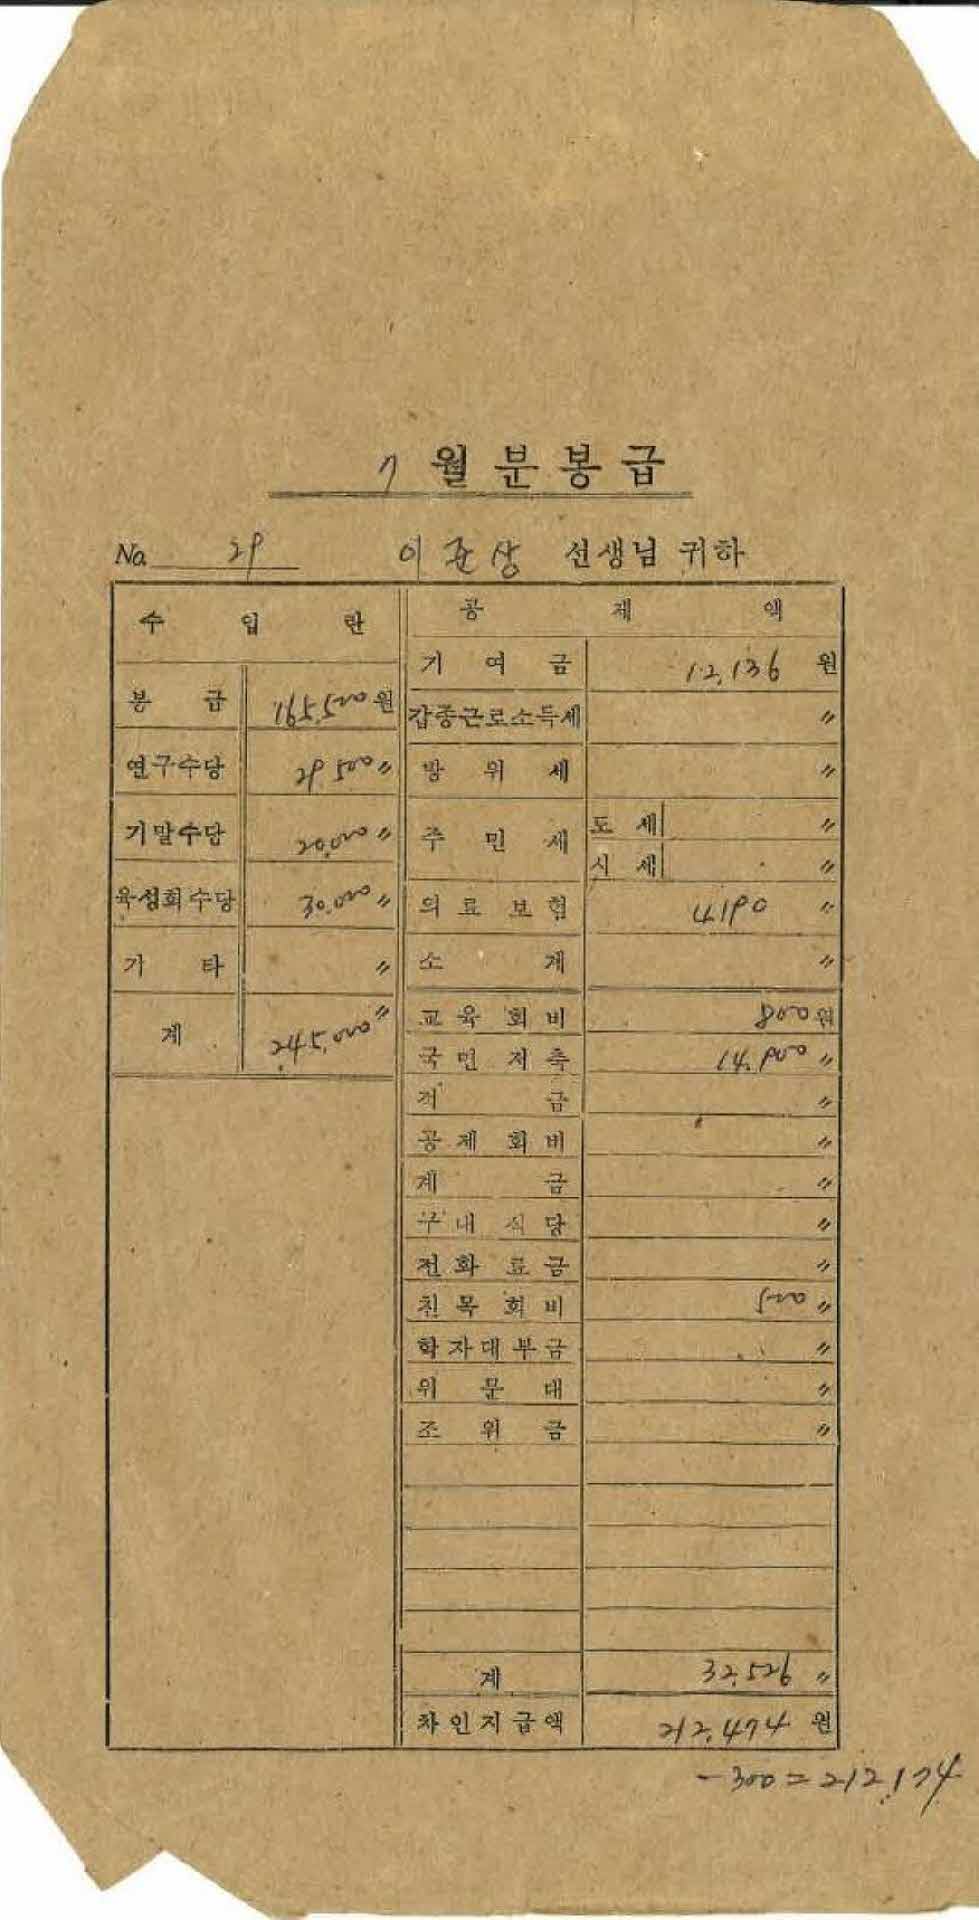 7 월 분 봉 급
No. 29 이 준 상 선생님 귀하
수 입 란
봉 급 165,500 원
연구수당 29,500 〃
기말수당 20,000 〃
육성회수당 30,000 〃
기 타 〃
계 245,000 〃
공 제 액
기 여 금 12,136 원
갑종근로소득세 〃
방 위 세 〃
주 민 세 도 세 〃
시 세 〃
의 료 보 험 4,190 〃
소 계 〃
교 육 회 비 800 원
국 민 저 축 14,900 〃
적 금 〃
공 제 회 비 〃
계 금 〃
구 내 식 당 〃
전 화 료 금 〃
친 목 회 비 500 〃
학 자 대 부 금 〃
위 문 대 〃
조 위 금 〃
계 32,526 〃
차 인 지 급 액 212,474 원
-300=212,174